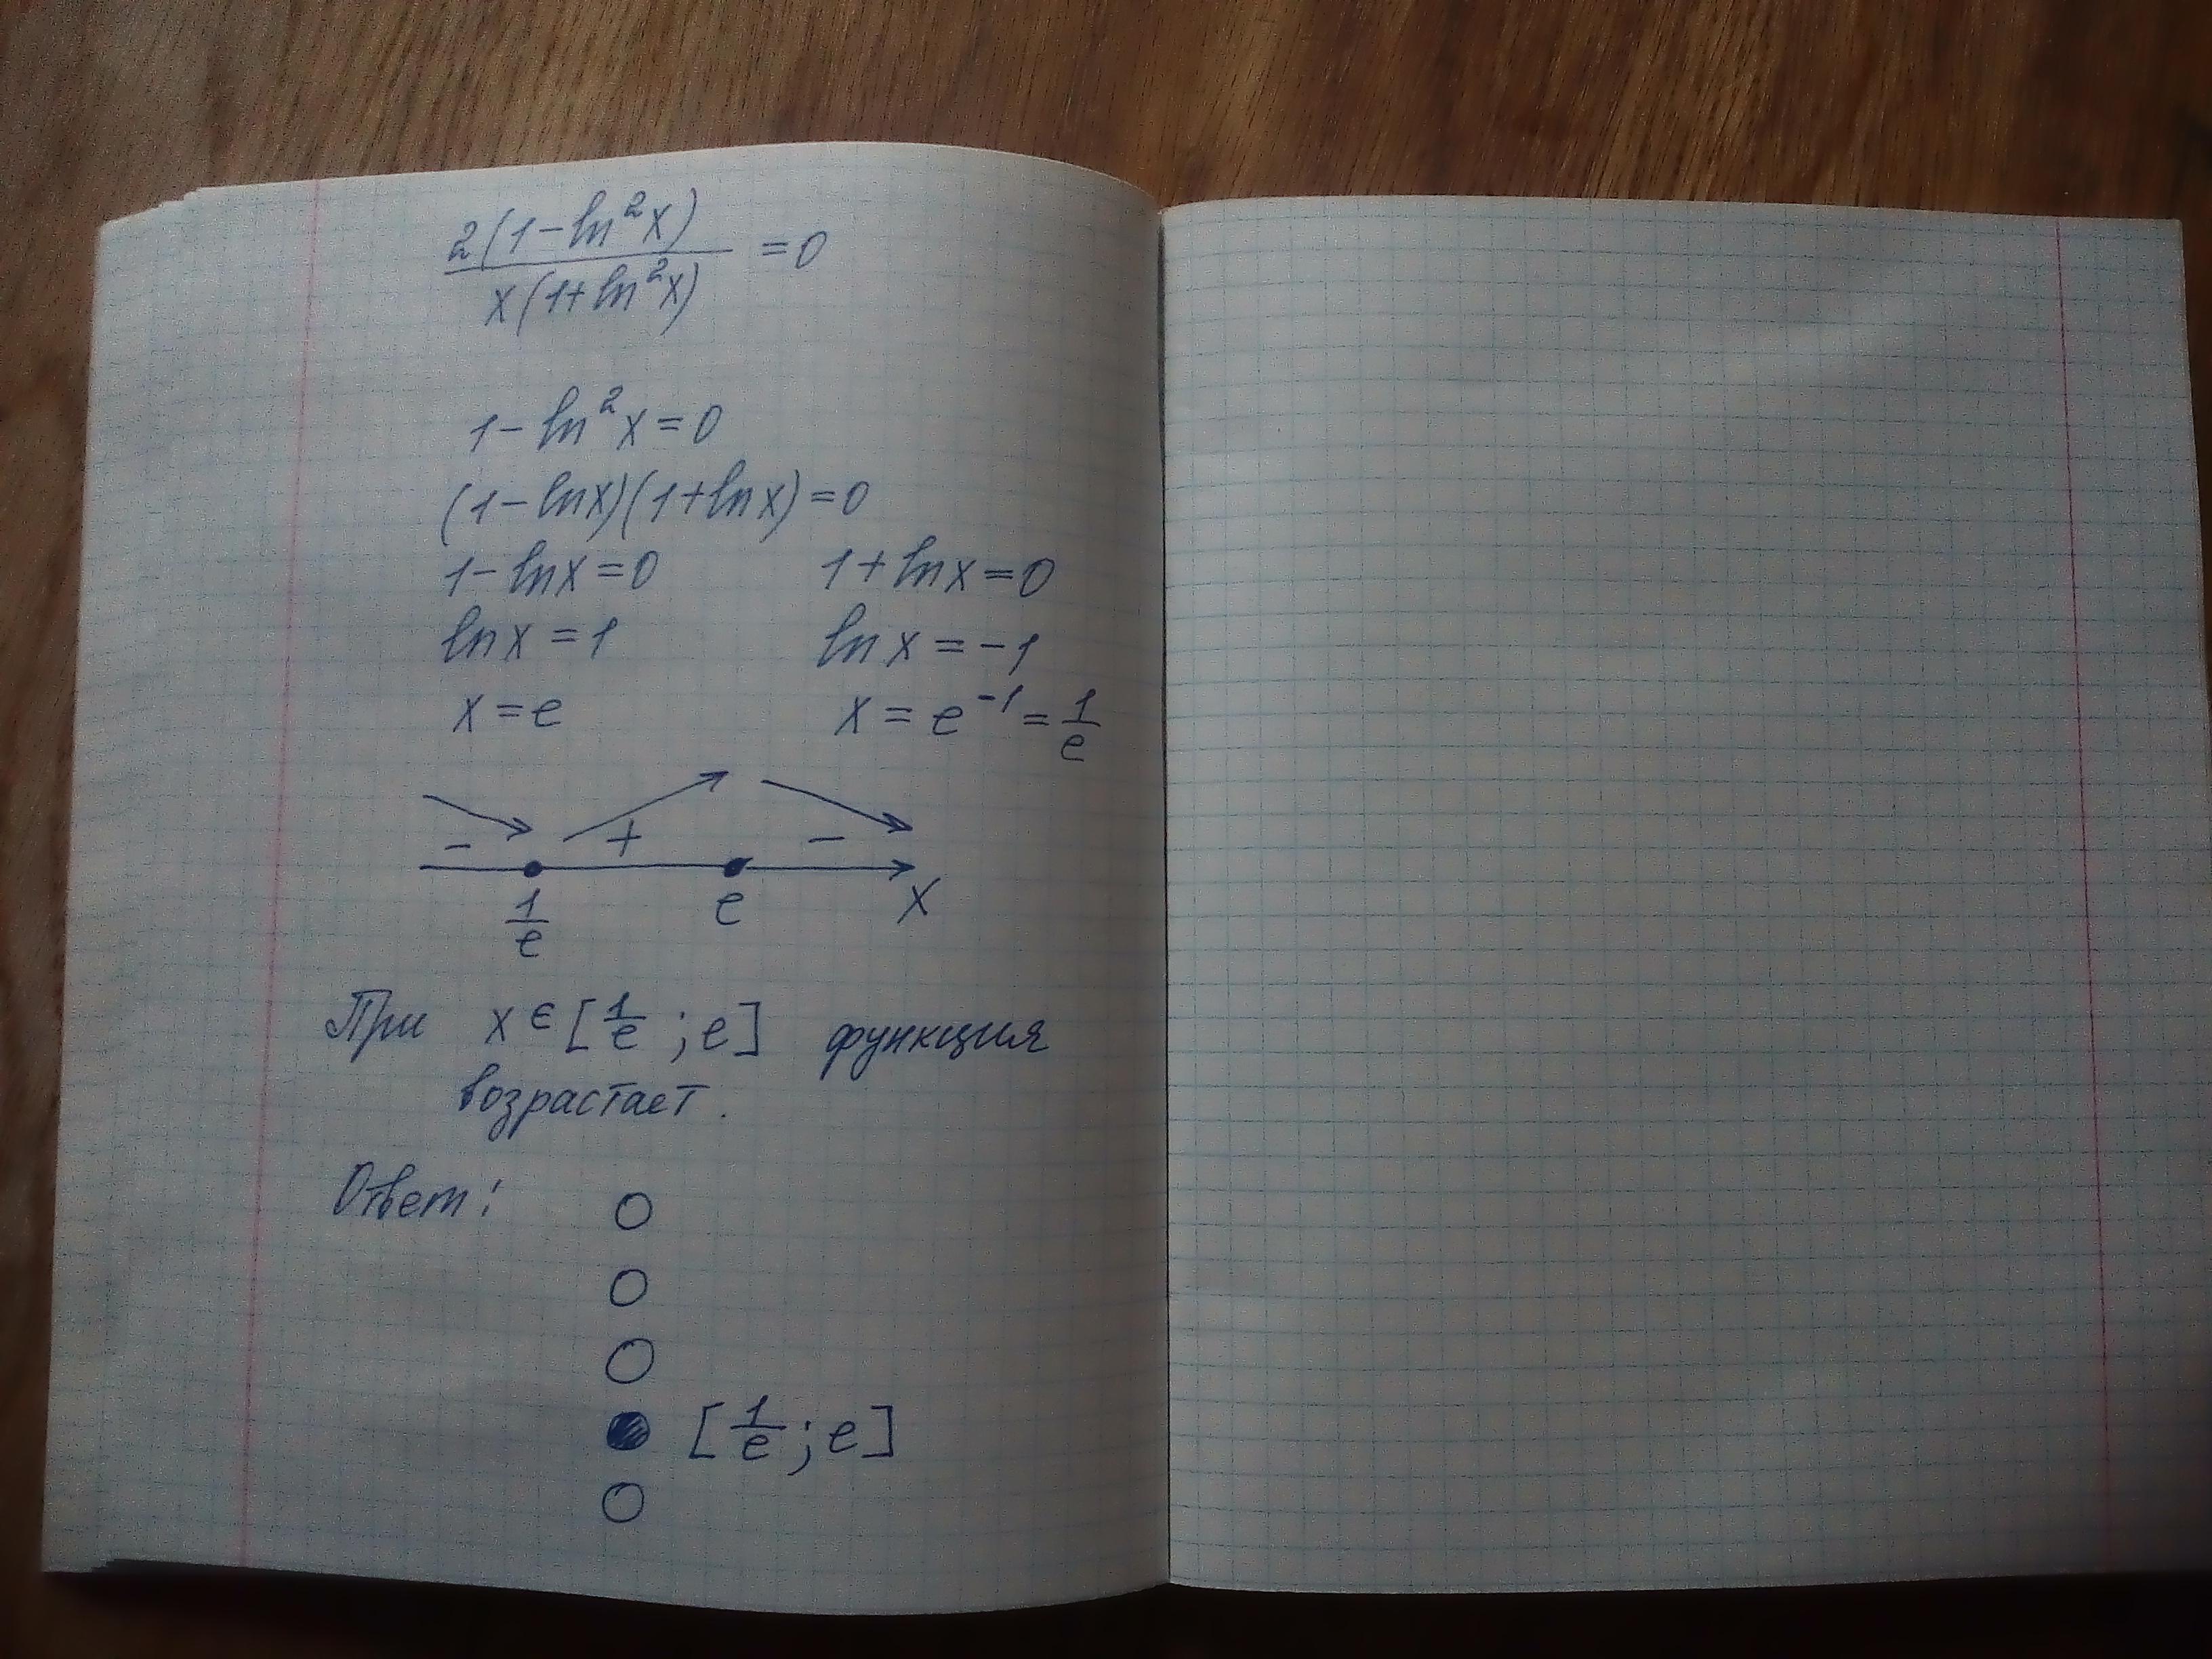 2(1-ln²x)/x(1+ln²x) =0
1-ln²x=0
(1-lnx)(1+lnx)=0
1-lnx=0 1+lnx=0
lnx=1 lnx=-1
x=e x=e⁻¹=1/e
- + -
1/e e x
При x∈[1/e;e] функция
возрастает.
Ответ:
[1/e;e]